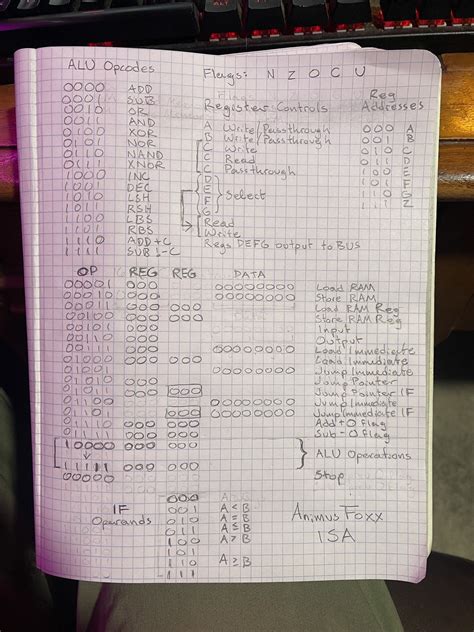 ALU Opcodes
Flags: N Z O C U
0000 ADD
0001 SUB
0010 OR
0011 AND
0100 XOR
0101 NOR
0110 NAND
0111 XNOR
1000 INC
1001 DEC
1010 LSH
1011 RSH
1100 LBS
1101 RBS
1110 ADD+C
1111 SUB-C
Register Controls
A Write/Passthrough
B Write/Passthrough
C Write
C Read
C Passthrough
D
E
F
G
Select
Read
Write
Regs DEFG output to BUS
Reg
Addresses
000 A
001 B
010 C
011 D
100 E
101 F
110 G
111 Z
OP REG REG DATA
00001 000 00000000 Load RAM
00010 000 00000000 Store RAM
00011 000 000 Load RAM Reg
00100 000 000 Store RAM Reg
00101 000 Input
00110 000 Output
00111 000 00000000 Load Immediate
01000 000 000
01001 00000000 Jump Immediate
01010 000 Jump Pointer
01011 000 000 Jump Pointer IF
01101 000 00000000 Jump Immediate IF
000 000 Add+O Flag
000 000 Sub-O Flag
10000 000 000
ALU Operations
11111 000 000
00000 Stop
IF
Operands
000
001 A<B
010 A=B
011 A≤B
100 A>B
101
110 A≥B
111
Animus Foxx
ISA